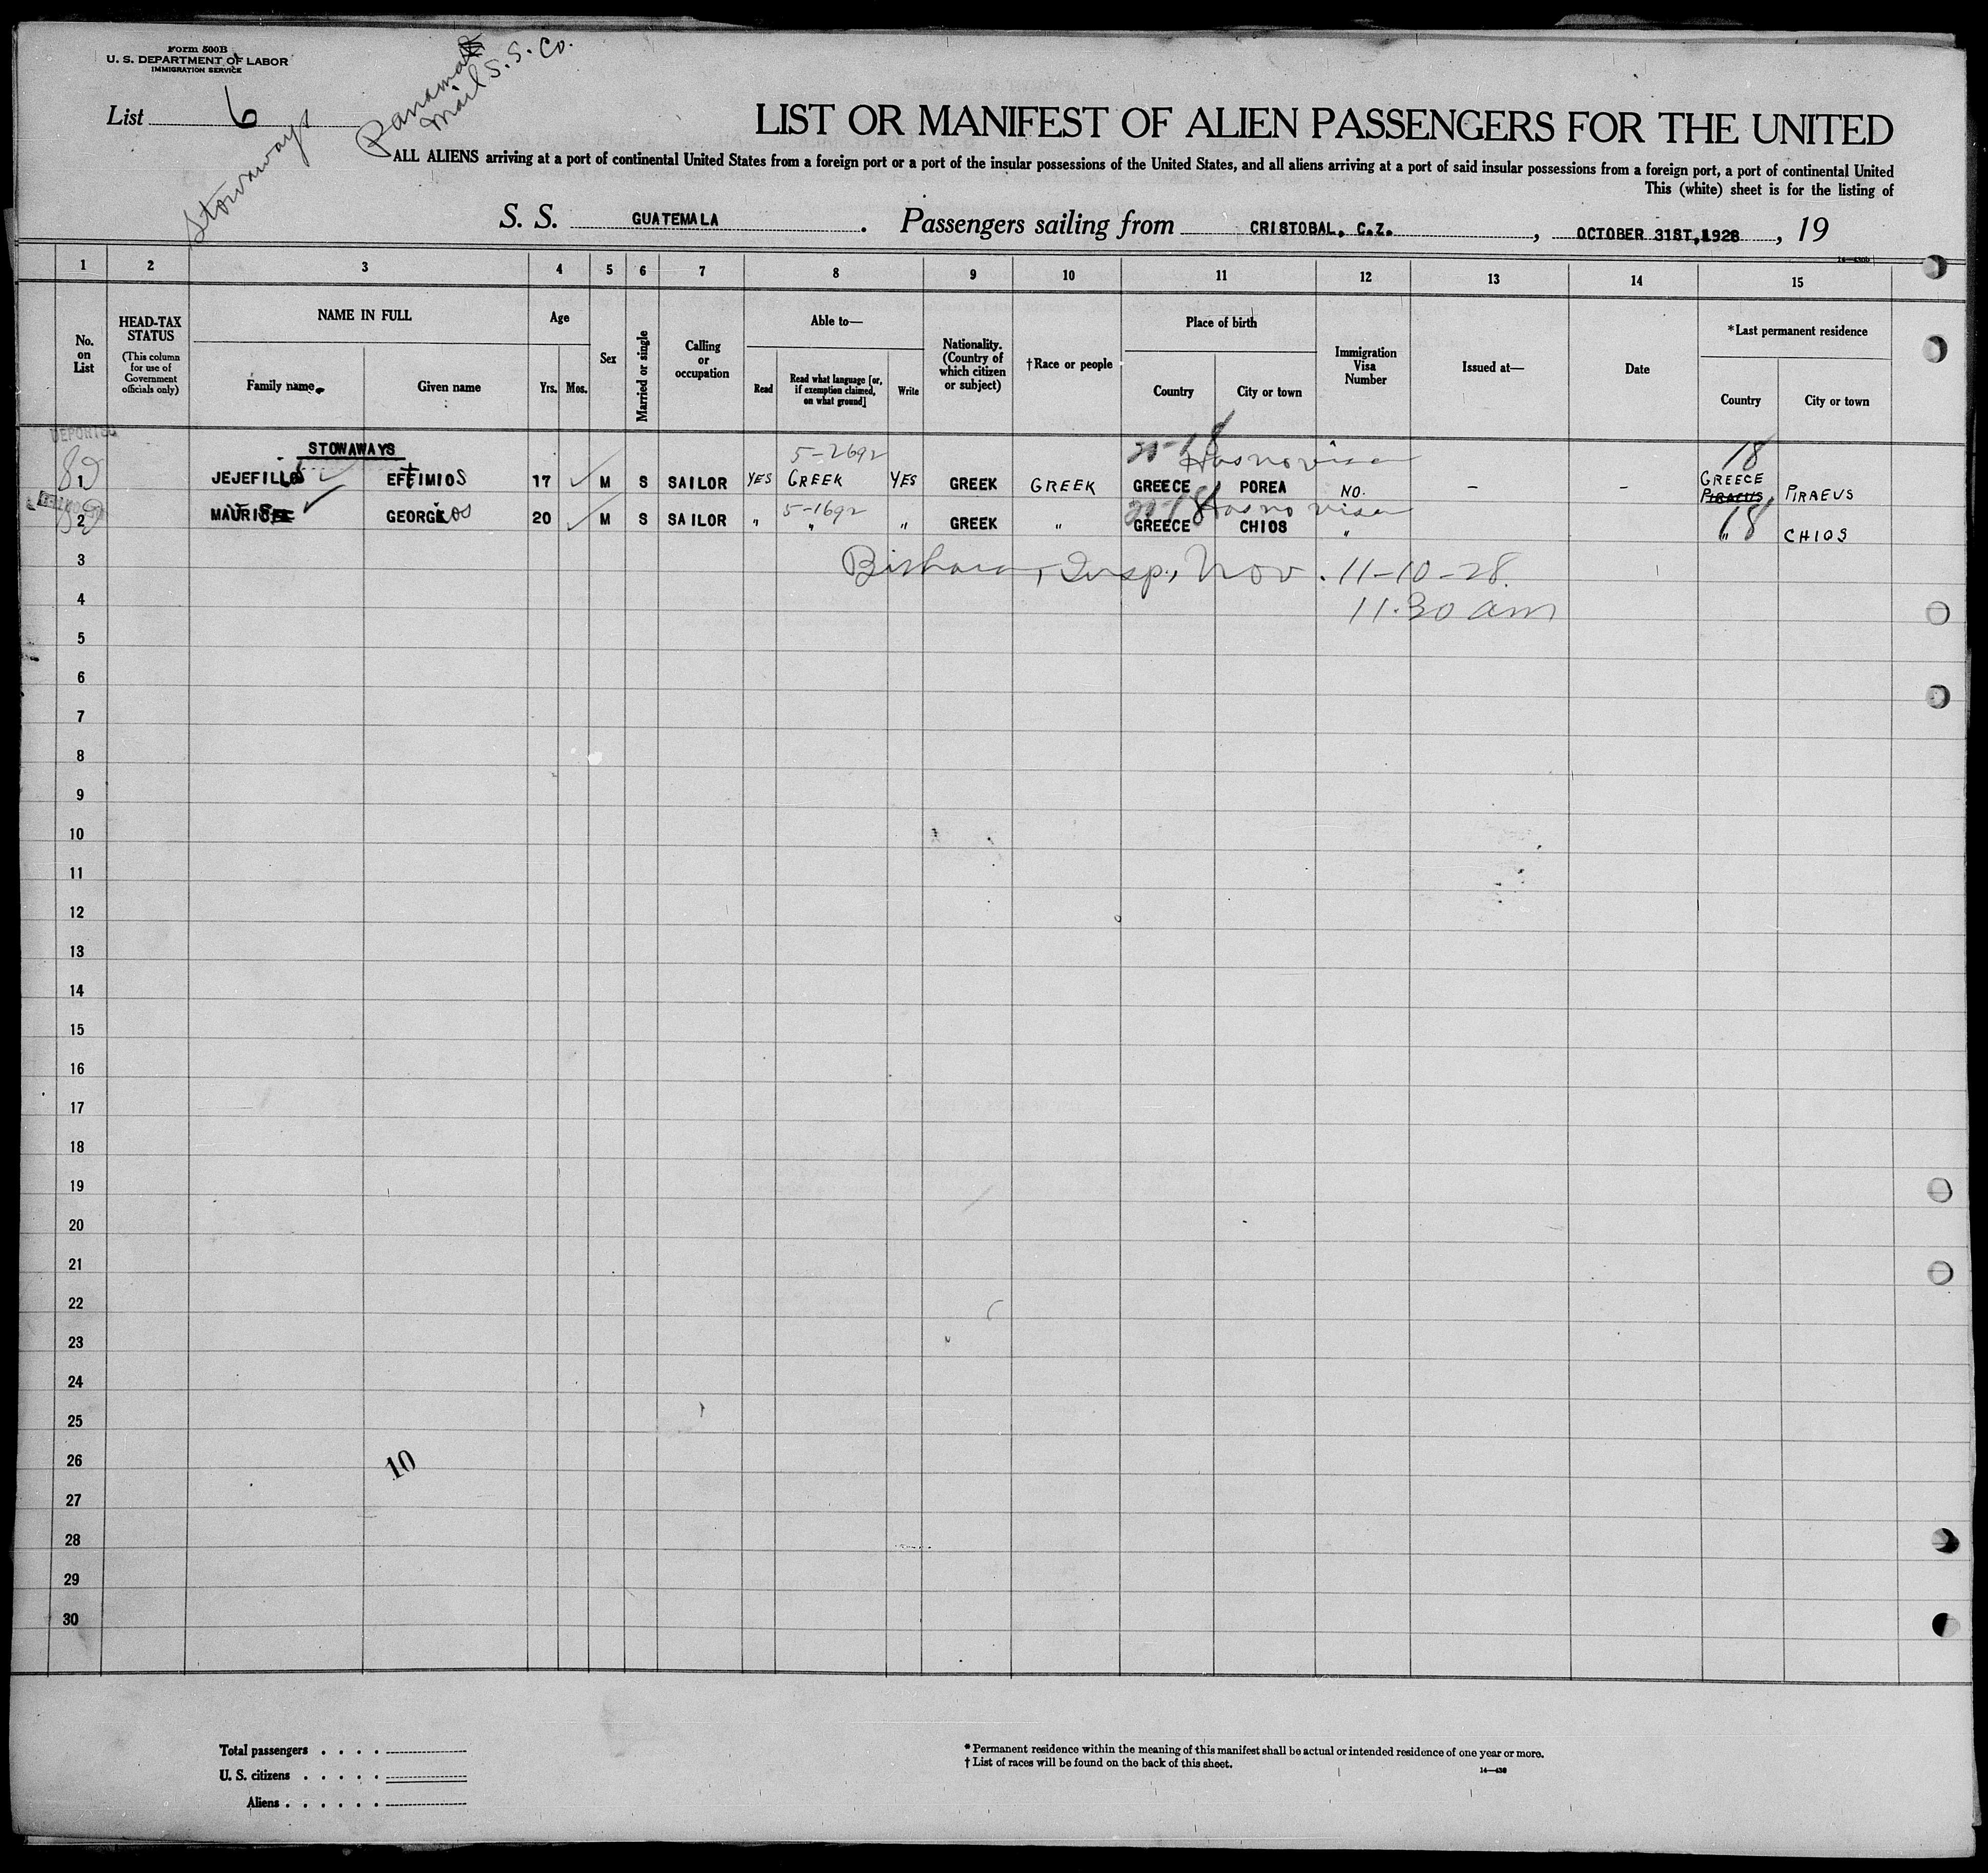 Form 500B
U. S. DEPARTMENT OF LABOR
IMMIGRATION SERVICE
List 6
Stowaways
Panama
Mail S. S. Co.
LIST OR MANIFEST OF ALIEN PASSENGERS FOR THE UNITED
ALL ALIENS arriving at a port of continental United States from a foreign port or a port of the insular possessions of the United States, and all aliens arriving at a port of said insular possessions from a foreign port, a port of continental United
This (white) sheet is for the listing of
S. S. GUATEMALA. Passengers sailing from CRISTOBAL, C.Z., OCTOBER 31ST,1928, 19
1 2 3 4 5 6 7 8 9 10 11 12 13 14 15
No. on List
HEAD-TAX STATUS
(This column for use of Government officials only)
NAME IN FULL
Family name
Given name
Age
Yrs. Mos.
Sex
Married or single
Calling or occupation
Able to—
Read
Read what language [or, if exemption claimed, on what ground]
Write
Nationality. (Country of which citizen or subject)
†Race or people
Place of birth
Country
City or town
Immigration Visa Number
Issued at—
Date
*Last permanent residence
Country
City or town
DEPORTED
STOWAWAYS
5-2692
Has no visa
18
1 JEJEFILLOS EFTIMIOS 17 M S SAILOR YES GREEK YES GREEK GREEK GREECE POREA NO. - - GREECE PIRAEUS PIRAEUS
5-1692
Has no visa
18
2 MAURIS GEORGIOS 20 M S SAILOR " " " GREEK " GREECE CHIOS " " CHIOS
3 Insp., Nov. 11-10-28.
4 11.30 am
5
6
7
8
9
10
11
12
13
14
15
16
17
18
19
20
21
22
23
24
25
26
10
27
28
29
30
Total passengers . . . .
U. S. citizens . . . . .
Aliens . . . . . .
* Permanent residence within the meaning of this manifest shall be actual or intended residence of one year or more.
† List of races will be found on the back of this sheet.
14—430